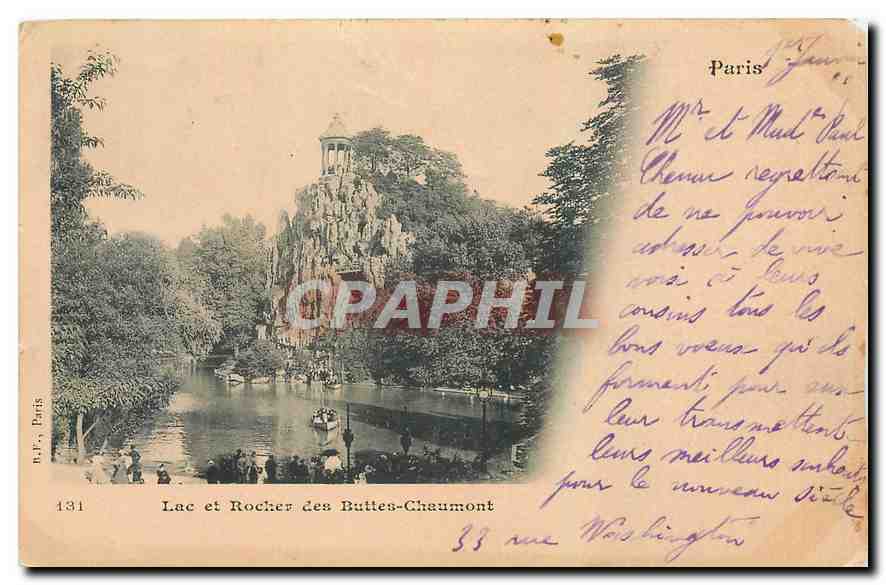 Paris 1er Janvier
Mr et Madme Paul
regrettant
de ne pouvoir
adresser de vive
voix à leurs
cousins tous les
bons voeux qu'ils
forment pour eux
leur transmettent
leurs meilleurs souhaits
pour le nouveau siècle
33 rue Washington
CAPHIL
B.F., Paris
131 Lac et Rocher des Buttes-Chaumont